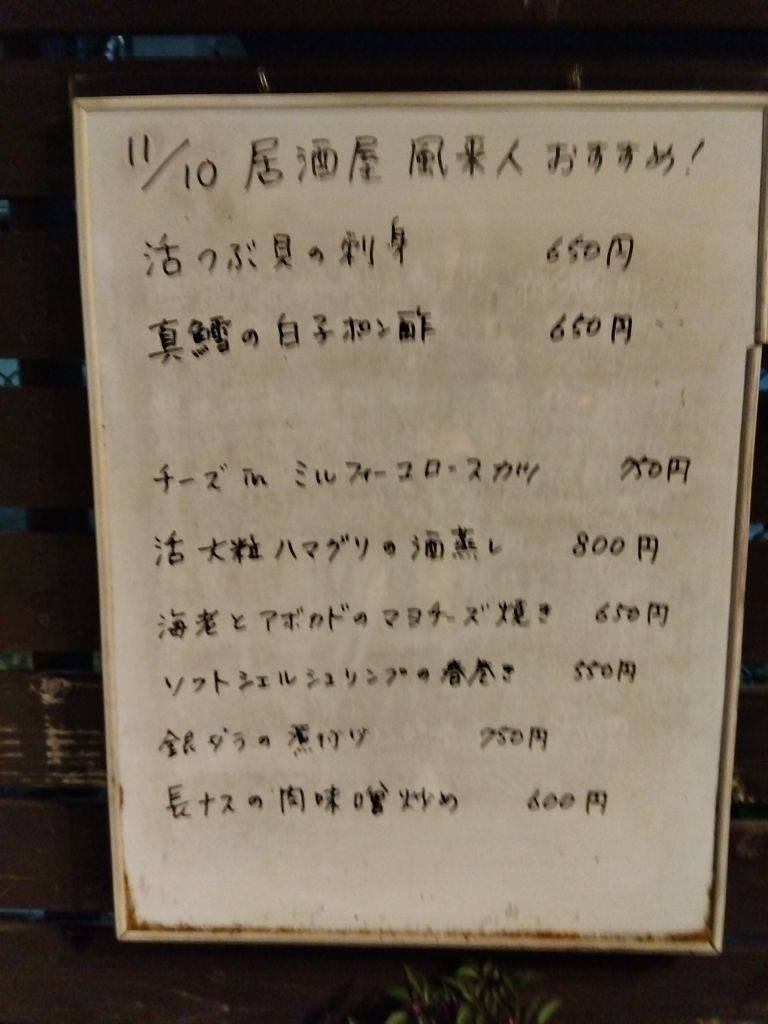 11/10 居酒屋 風来人 おすすめ!
活つぶ貝の刺身 650円
真鱈の白子ポン酢 650円
チーズin ミルフィーユロースカツ 750円
活大粒ハマグリの酒蒸し 800円
海老とアボカドのマヨチーズ焼き 650円
ソフトシェルシュリンプの春巻き 550円
銀ダラの煮付け 750円
長ナスの肉味噌炒め 600円